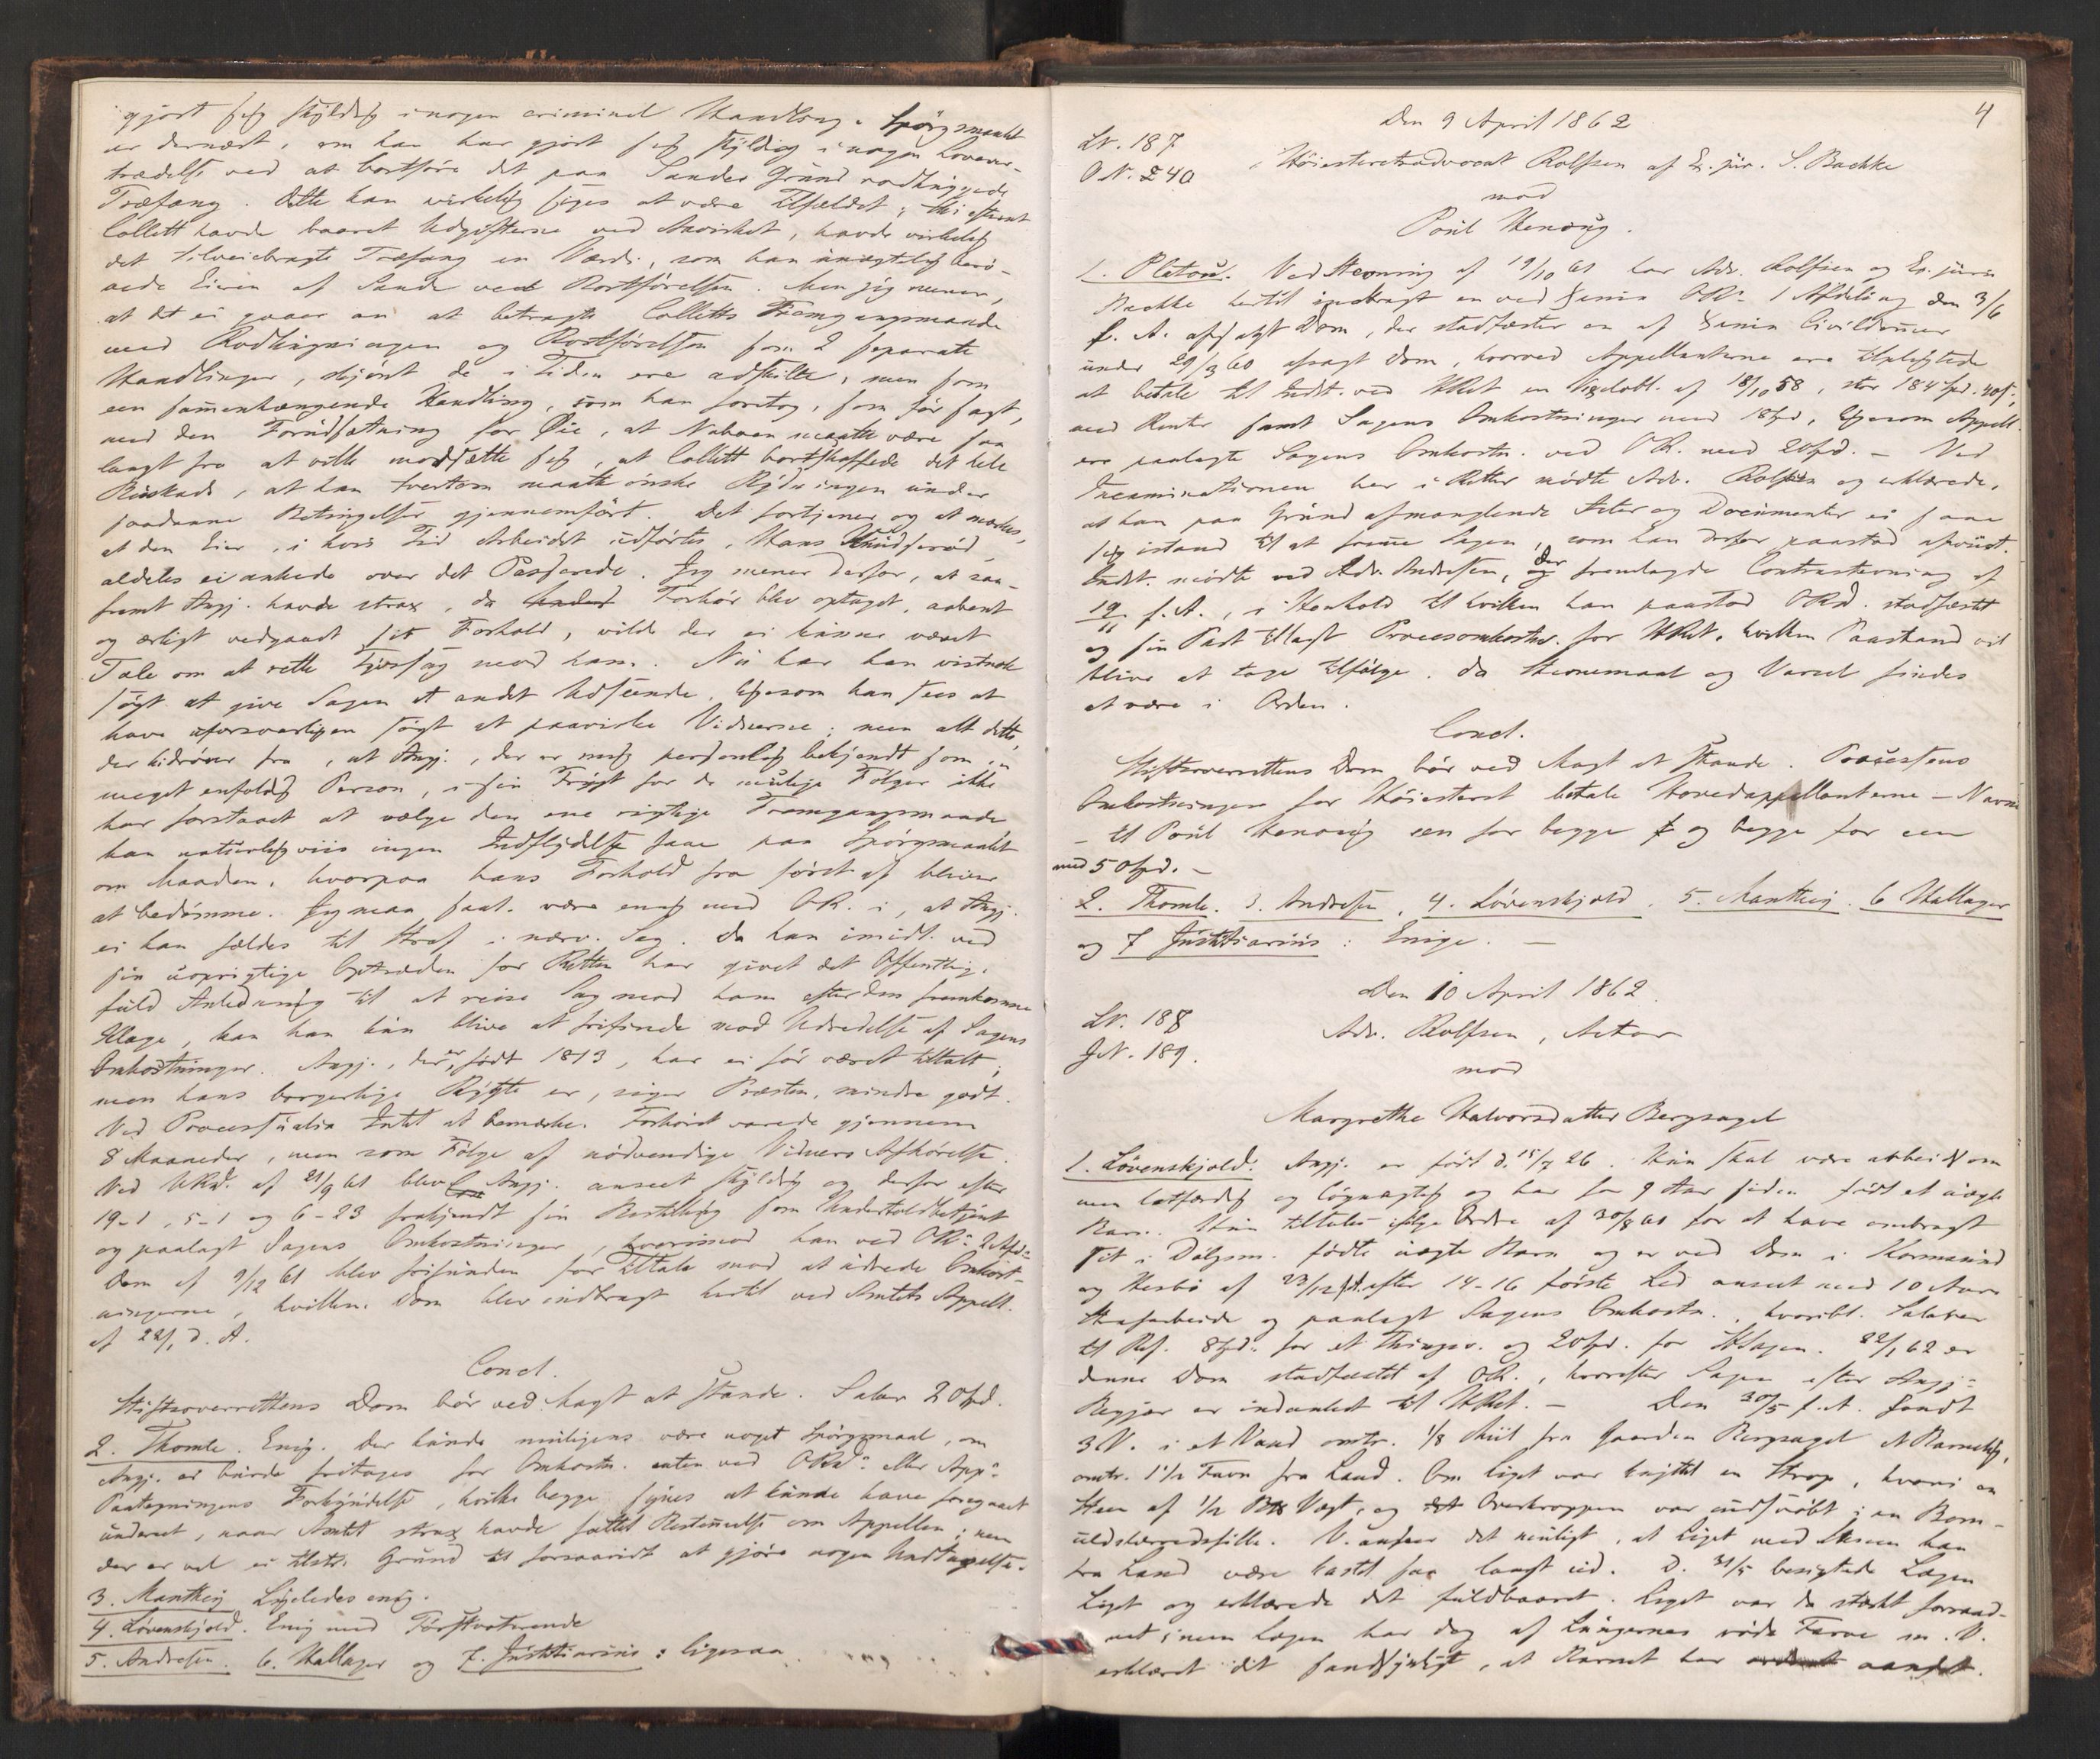 gjort sig skyldig i nogen criminel Handling. Spörgsmaalet
er dernæst, om han har gjort sig skyldig i nogen Lovover-
trædelse ved at bortföre det paa Sandes Grund rodhuggede
Træfang. Dette kan virkelig siges at være Tilfældet; thi efterat
Collett havde baaret Udgifterne ved Arbeidet, havde virkelig
det tilveiebragte Træfang en Værdi, som han unægtelig berö-
vede Eieren af Sande ved Bortförelsen. Men jeg mener,
at det ei gaaer an at betragte Colletts Fremgangsmaade
med Rodhugningen og Bortförelsen som 2 separate
Handlinger, skjöndt de i Tiden ere adskilte, men som
een sammenhængende Handling, som han foretog, som för sagt,
med den Forudsætning for Öie, at Naboen maatte være saa
langt fra at ville modsætte sig, at Collett bortskaffede det hele
Buskads, at han tvertom maatte önske Rydningen under
saadanne Betingelser gjennemfört. Det fortjener og at mærkes,
at den Eier, i hvis Tid Arbeidet udförtes, Hans Knudseröd,
aldeles ei ankede over det Passerede. Jeg mener derfor, at saa-
fremt Angj. havde strax, da Forhör blev optaget, aabent
og ærligt vedgaaet sit Forhold, vilde der ei kunne været
Tale om at rette Tyvssag mod ham. Nu har han vistnok
sögt at give Sagen et andet Udseende, ligesom han sees at
have uforsvarligen sögt at paavirke Vidnerne; men alt dette,
der hidrörer fra, at Angj., der er mig personlig bekjendt som en
meget enfoldig Person, i sin Frygt for de mulige Fölger ikke
har forstaaet at vælge den ene rigtige Fremgangsmaade
kan naturligviis ingen Indflydelse faae paa Spörgsmaalet
om Maaden, hvorpaa hans Forhold fra först af bliver
at bedömme. Jeg maa saal. være enig med OR. i, at Angj.
ei kan fældes til Straf i nærv. Sag. Da han imidl. ved
sin uoprigtige Optræden for Retten har givet det Offentlige
fuld Anledning til at reise Sag mod ham efter den fremkomne
Klage, kan han kun blive at frifinde mod Udredelse af Sagens
Omkostninger. Angj., der er födt 1813, har ei för været tiltalt,
men hans borgerlige Rygte er, siger Præsten, mindre godt.
Ved Processualia Intet at bemærke. Forhöret varede gjennem
8 Maaneder, men som Fölge af nödvendige Vidners Afhörelse.
Ved URD. af 21/9 61 blev Angj. anseet skyldig og derfor efter
19-1, 5-1 og 6-23 frakjendt sin Bestilling som Undertoldbetjent
og paalagt Sagens Omkostninger, hvorimod han ved OR. 2 Afd.
Dom af 9/12 61 blev frifunden for Tiltale mod at udrede Omkost-
ningerne, hvilken Dom blev indbragt hertil ved Amtets Appell.
af 22/1 d. A.
Concl.
Stiftsoverrettens Dom bör ved Magt at stande. Salær 20 Spd.
2. Thomle. Enig. Der kunde muligens være noget Spörgsmaal, om
Angj. ei burde fritages for Omkostn. enten ved ORd. eller App.
Paategningens Forkyndelse, hvilke begge synes at kunde have foregaaet
underet, naar Amtet strax havde fattet Bestemmelse om Appellen; men
der er vel ei tilstr. Grund til forsaavidt at gjöre nogen Undtagelse.
3. Manthey Ligeledes enig.
4. Lövenskjold. Enig med Förstvoterende
5. Andresen. 6. Hallager og 7. Justitiarius: ligesaa.
4
Den 9 April 1862
LN. 187
ON. 240
Höiesteretsadvocat Rolfsen af Ex. jur. S. Bachke
mod
Poul Henoug.
1. Pletou. Ved Stevning af 19/10 61 har Adv. Rolfsen og Ex. juris
Bachke hertil indbragt en ved OR. 1 Afdeling den 3/6
f. A. afsagt Dom, der stadfæster en af
under 29/3 60 afsagt Dom, hvorved Appellanterne ere tilpligtede
at betale til Indst. ved HRet en af 18/10 58, stor 184 Spd.
med Renter samt Sagens Omkostninger med 18 Spd, ligesom Appell.
ere paalagte Sagens Omkostn. ved OR. med 20 Spd. - Ved
Incaminationen her i Retten mödte Adv. Rolfsen og erklærede,
at han paa Grund af manglende Acter og Documenter ei saae
sig istand til at fremme Sagen, som han derfor paastod afviist.
Indst. mödte ved Adv. Andresen, der fremlagde Contrastevning af
19/11 f. A., i Henhold til hvilken han paastod ORd. stadfæstet
og sin Part tillagt Procesomkostn. for HRet, hvilken Paastand vil
blive at tage tilfölge, da Stevnemaal og Varsel findes
at være i Orden.
Concl.
Stiftsoverrettens Dom bör ved Magt at stande. Processens
Omkostninger for Höiesteret betale Hovedappellanterne - Navne
- til Poul Henoug een for begge og begge for een
med 50 Spd. -
2. Thomle. 3. Andresen, 4. Lövenskjold. 5. Manthey. 6 Hallager
og 7 Justitiarius: Enige. -
Den 10 April 1862.
LN. 188
JN. 189.
Adv. Rolfsen, Actor
mod
Margrethe Halvorsdatter Bergsagel
1. Lövenskjold. Angj. er födt d. 15/7 26. Hun skal være arbeidsom
men letfærdig og lögnagtig og har for 9 Aar siden födt et uægte
Barn. Hun tiltales ifölge Ordre af 30/8 61 for at have ombragt
sit i Dölgsm. födte uægte Barn og er ved Dom i Karmsund
og Hesbö af 23/12 f. A. efter 14-16 förste Led anseet med 10 Aars
Strafarbeide og paalagt Sagens Omkostn., hvoribl. Salærer
til Ref. 8 Spd. for et Thingsv. og 20 Spd. for HSagen. 22/1 62 er
denne Dom stadfæstet af OR., hvorefter Sagen efter Angj.
Begjær er indanket til HRet. - Den 30/5 f. A. fandt
3 V. i et Vand omtr. 1/8 Miil fra Gaarden Bergsagel et Barnelig,
omtr. 1 1/2 Favn fra Land. Om Liget var knyttet en Strop, hvori en
Steen af 1/2 Vægt, og Overkroppen var indsvöbt i en Bom-
uldslærredsfille. V. anseer det muligt, at Liget med Stenen kan
fra Land være kastet saa langt ud. D. 31/5 besigtede Lægen
Liget og erklærede det fuldbaaret. Liget var da stærkt forraad-
net; men Lægen har dog af Lungernes röde Farve m. V.
erklæret det sandsynligt, at Barnet har aandet.